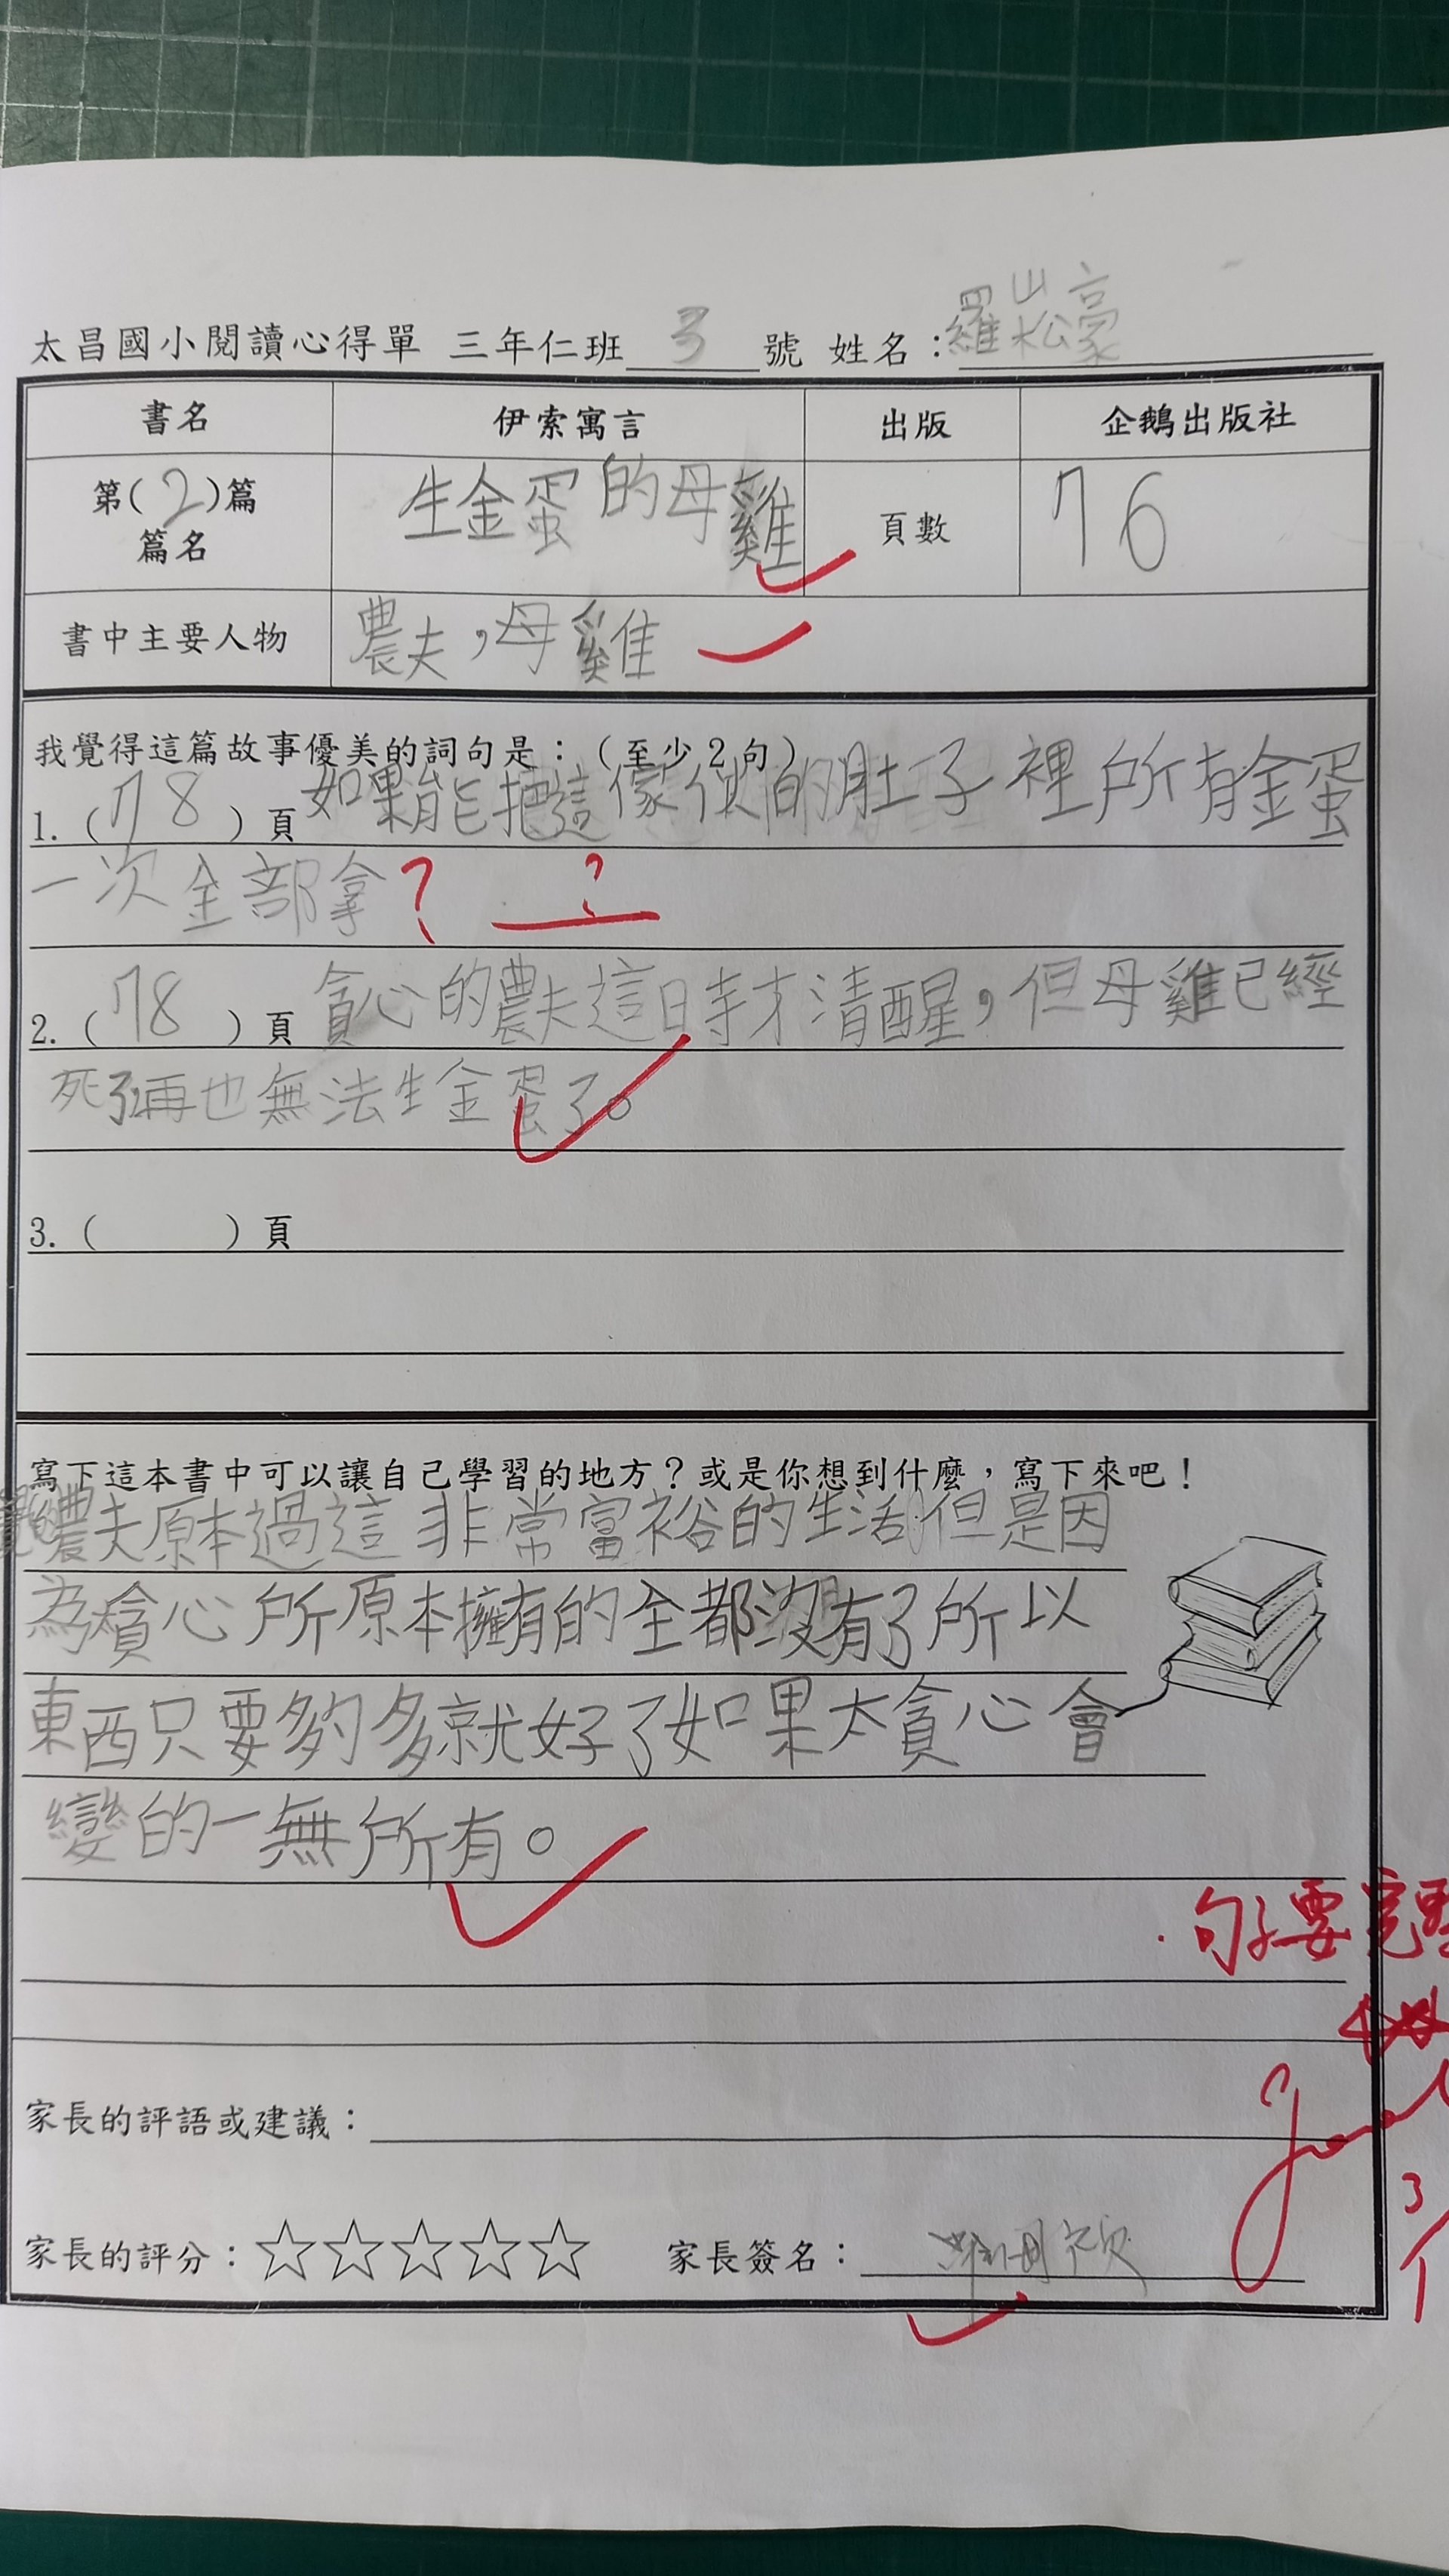 太昌國小閱讀心得單 三年仁班 3 號 姓名：羅崧豪
書名 伊索寓言 出版 企鵝出版社
第(2)篇 篇名 生金蛋的母雞 頁數 76
書中主要人物 農夫，母雞
我覺得這篇故事優美的詞句是：（至少2句）
1.（78）頁 如果能把這傢伙的肚子裡所有金蛋
一次全部拿？ ？
2.（78）頁 貪心的農夫這時才清醒，但母雞已經
死了再也無法生金蛋了。
3.（ ）頁
寫下這本書中可以讓自己學習的地方？或是你想到什麼，寫下來吧！
農夫原本過這非常富裕的生活但是因
為貪心所原本擁有的全都沒有了所以
東西只要夠多就好了如果太貪心會
變的一無所有。
句子要完整
家長的評語或建議：
3/1
家長的評分：☆☆☆☆☆ 家長簽名：